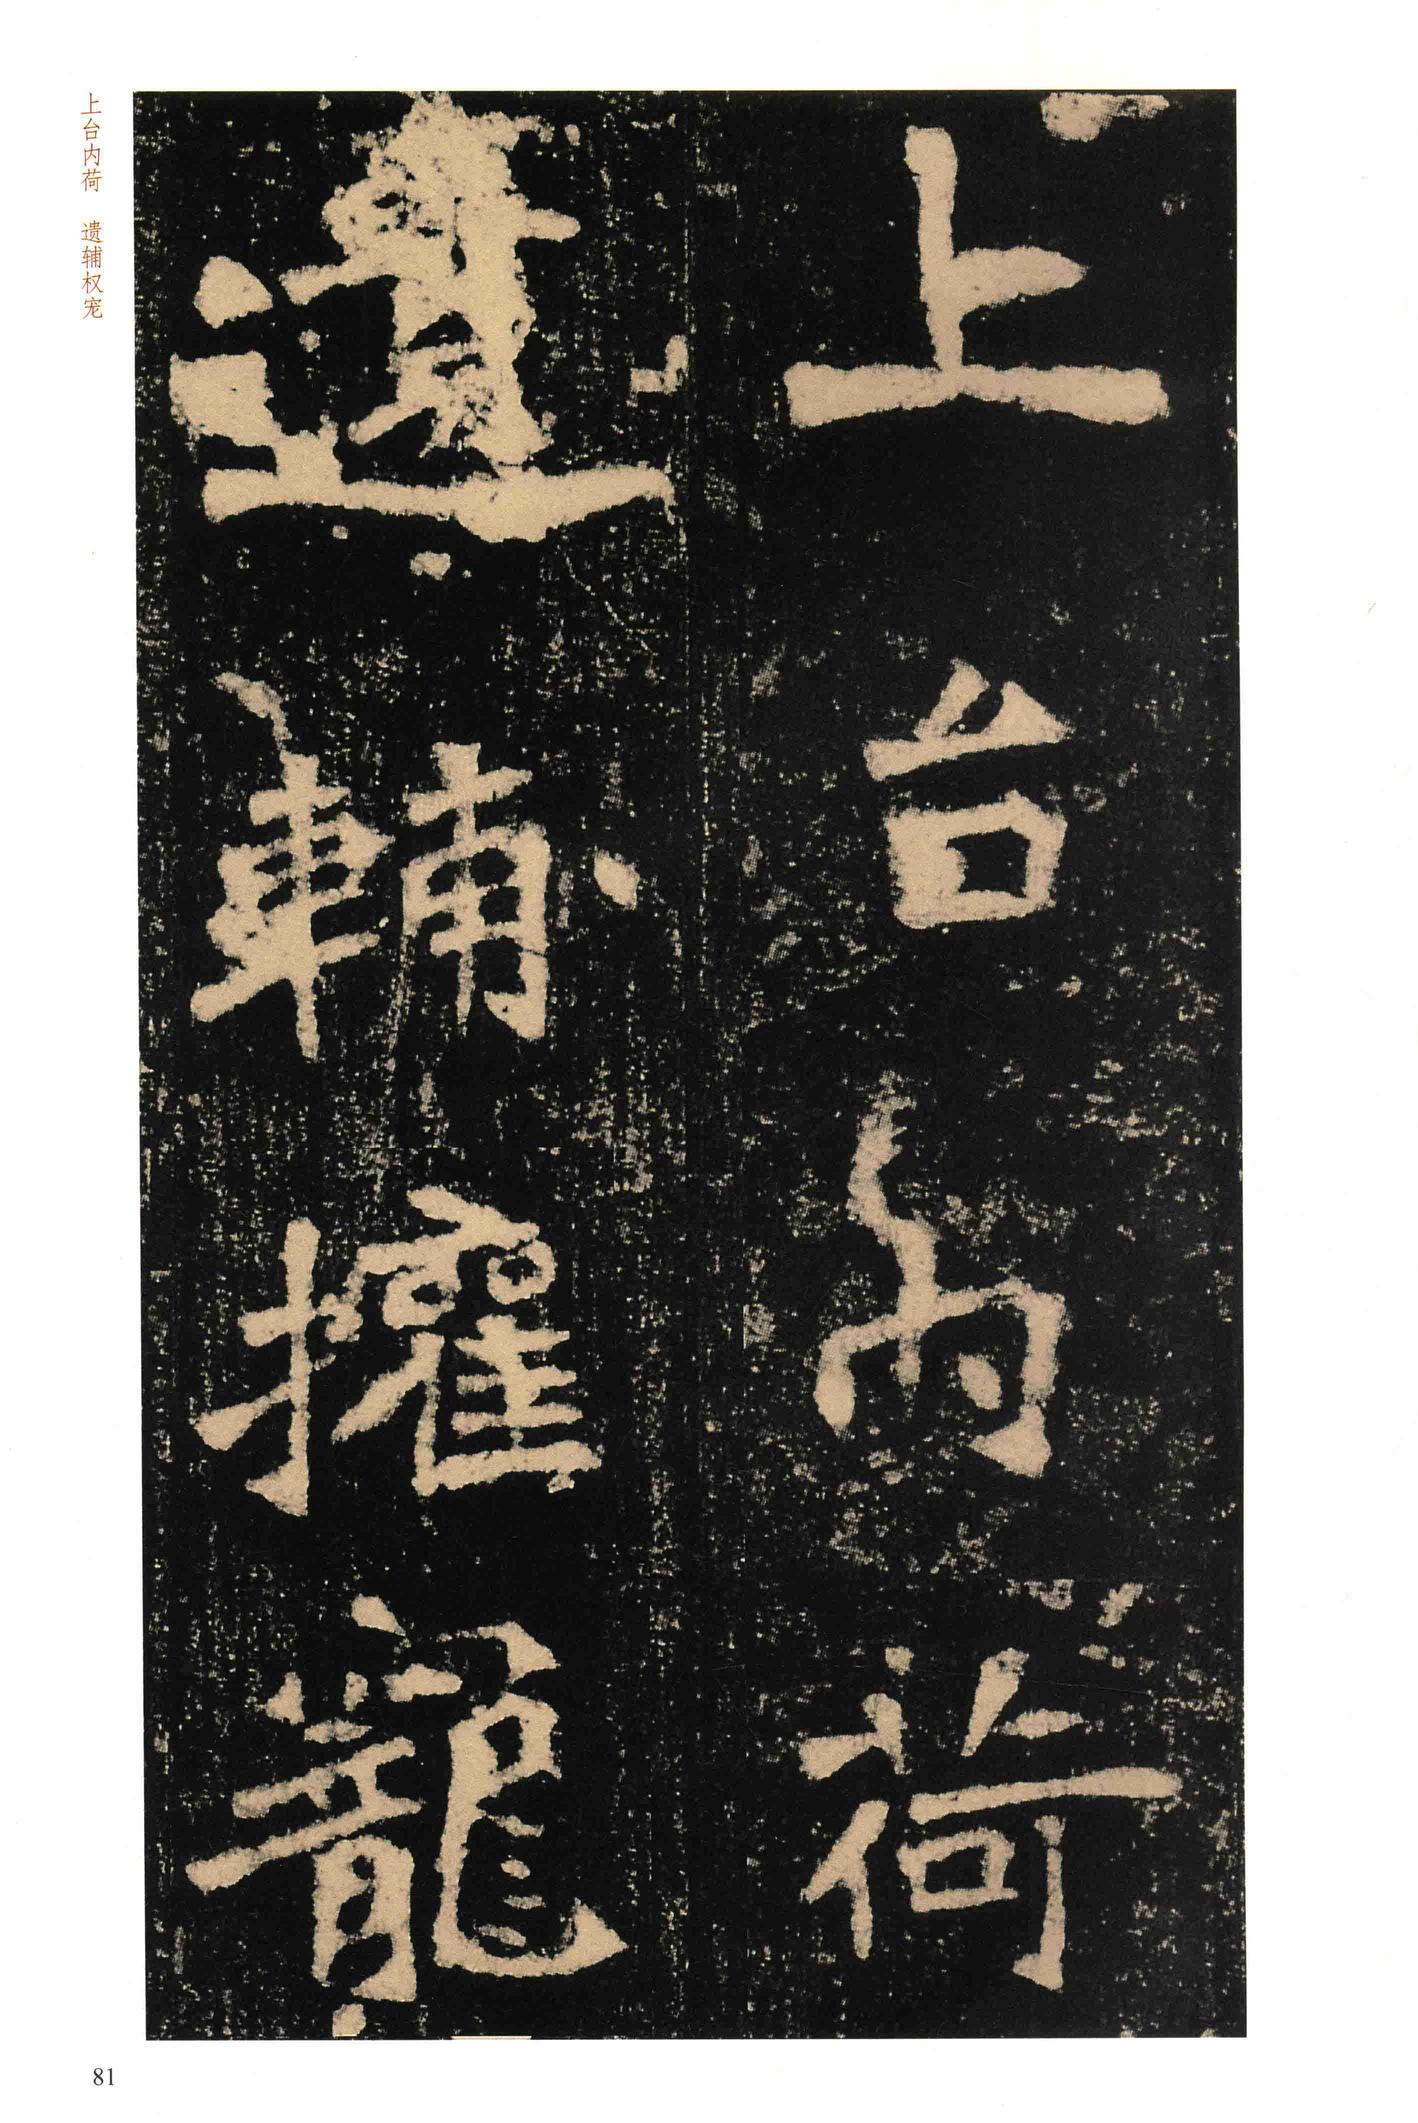 上台内荷
遺輔權寵
上台内荷 遗辅权宠
81